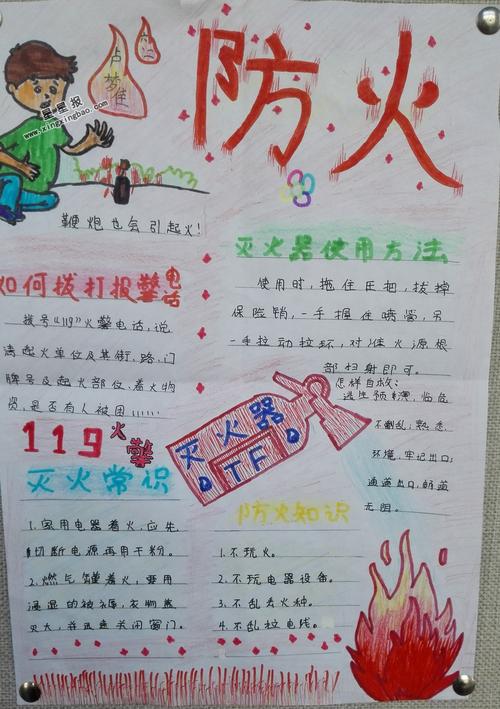 防火
六二
卢梦佳
星星报
www.xingxingbao.com
鞭炮也会引起火!
如何拨打报警电话
拨号“119”火警电话,说
清起火单位及其街、路、门
牌号及起火部位、着火物
资,是否有人被困……
119火警
灭火器使用方法
使用时,拖住压把,拔掉
保险销,一手握住喷管,另
一手拉动拉环,对准火源根
部扫射即可。
怎样自救:
逃生预演,临危
不乱,熟悉
环境,牢记出口;
通道出口,畅通
无阻。
灭火器
TF
灭火常识
1.家用电器着火,应先
切断电源再用干粉。
2.燃气罐着火,要用
浸湿的被褥,衣物盖
灭火,并迅速关闭窗门。
防火知识
1.不玩火。
2.不玩电器设备。
3.不乱丢火种。
4.不乱拉电线。